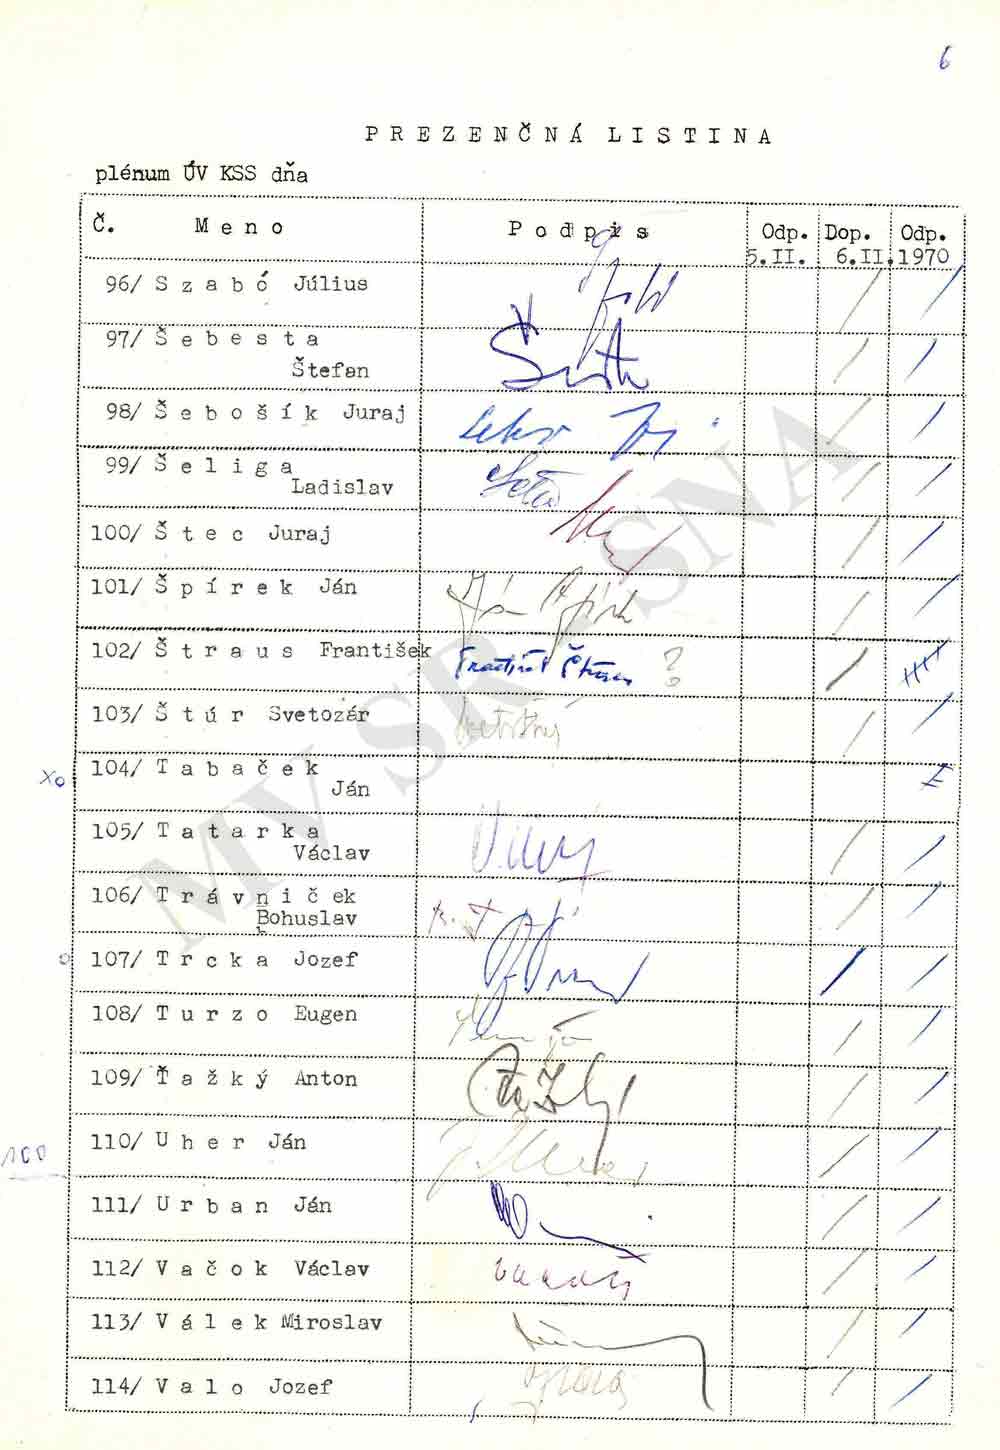 6
PREZENČNÁ LISTINA
plénum ÚV KSS dňa
Č. Meno Podpis Odp. Dop. Odp.
5.II. 6.II.1970
96/ Szabó Július
97/ Šebesta
Štefan
98/ Šebošík Juraj
99/ Šeliga
Ladislav
100/ Štec Juraj
101/ Špírek Ján
102/ Štraus František František Štraus ?
103/ Štúr Svetozár
xo 104/ Tabaček
Ján
105/ Tatarka
Václav
106/ Trávniček
Bohuslav
o 107/ Trcka Jozef
108/ Turzo Eugen
109/ Ťažký Anton
110/ Uher Ján
100
111/ Urban Ján
112/ Vačok Václav
113/ Válek Miroslav
114/ Valo Jozef
MV SR - SNA